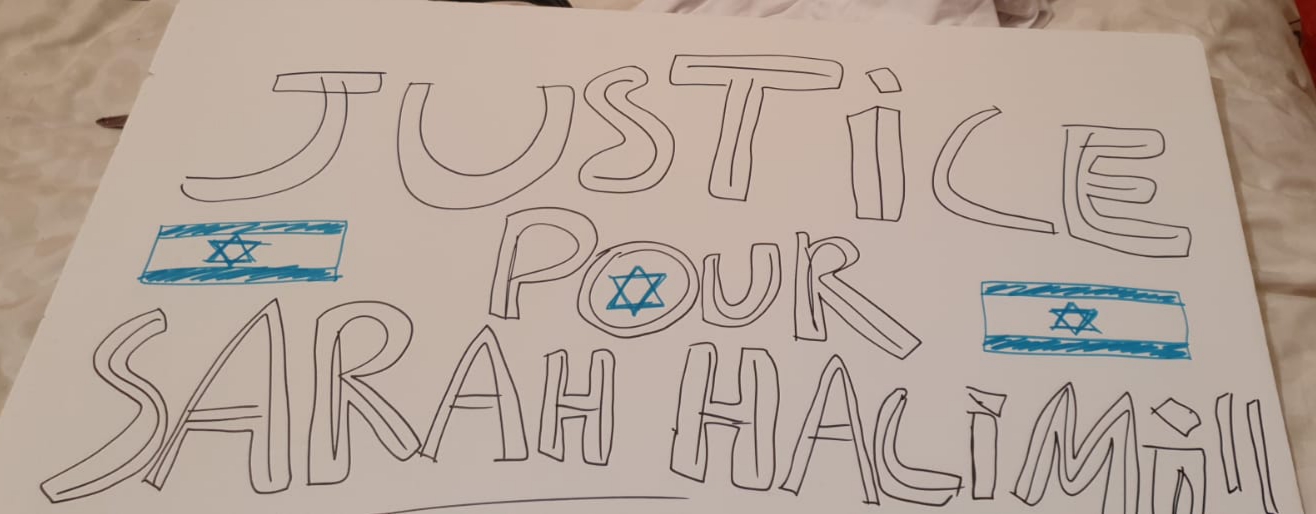 JUSTiCE
POUR
SARAH HALiMi!!